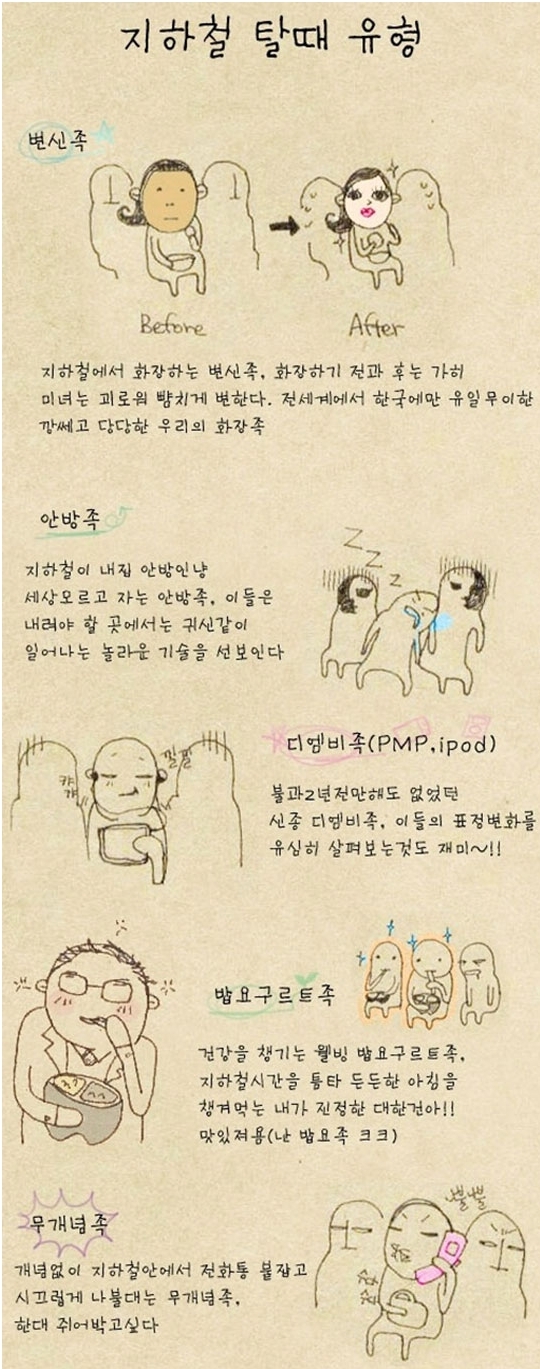 지하철 탈때 유형
변신족
Before
After
지하철에서 화장하는 변신족, 화장하기 전과 후는 가히
미녀는 괴로워 뺨치게 변한다. 전세계에서 한국에만 유일무이한
깡쎄고 당당한 우리의 화장족
안방족
지하철이 내집 안방인냥
세상모르고 자는 안방족, 이들은
내려야 할 곳에서는 귀신같이
일어나는 놀라운 기술을 선보인다
Z Z Z
디엠비족(PMP,ipod)
낄낄
캬캬
불과2년전만해도 없었던
신종 디엠비족, 이들의 표정변화를
유심히 살펴보는것도 재미~!!
밥요구르트족
건강을 챙기는 웰빙 밥요구르트족,
지하철시간을 틈타 든든한 아침을
챙겨먹는 내가 진정한 대한건아!!
맛있져용(난 밥요족 크크)
무개념족
뿔뿔
개념없이 지하철안에서 전화통 붙잡고
시끄럽게 나불대는 무개념족,
한대 쥐어박고싶다